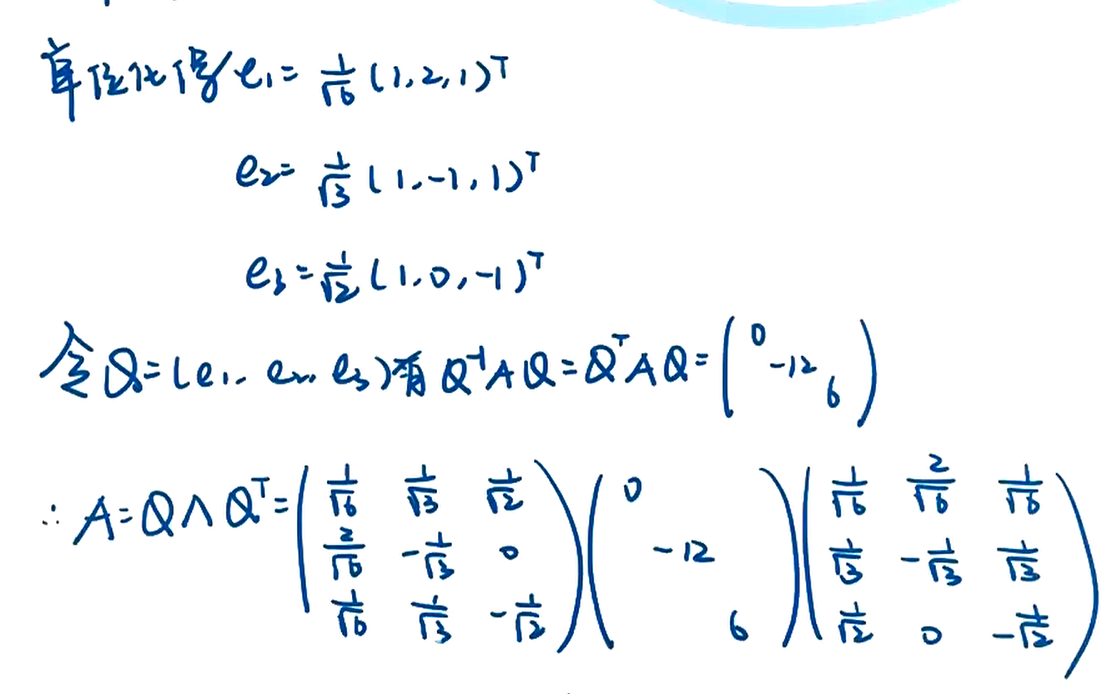 单位化得 e₁ = 1/√6 (1, 2, 1)ᵀ
e₂ = 1/√3 (1, -1, 1)ᵀ
e₃ = 1/√2 (1, 0, -1)ᵀ
令 Q = (e₁, e₂, e₃) 有 Q⁻¹AQ = QᵀAQ = ( 0 -12 6 )
∴ A = QΛQᵀ = ( 1/√6 1/√3 1/√2 ; 2/√6 -1/√3 0 ; 1/√6 1/√3 -1/√2 ) ( 0 ; -12 ; 6 ) ( 1/√6 2/√6 1/√6 ; 1/√3 -1/√3 1/√3 ; 1/√2 0 -1/√2 )